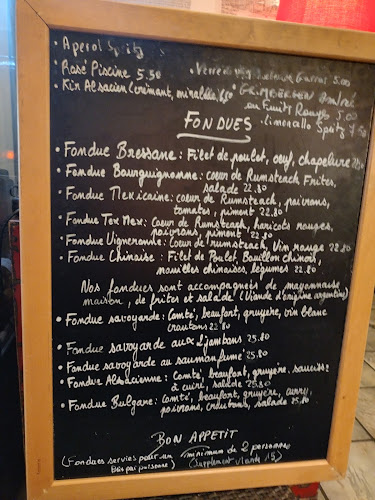 • Aperol Spritz
• Rosé Piscine 5.50
• Verre de vin 5.00
• Kir Alsacien Crémant, mirabelle, 6.50
• GRIMBERGEN Ambrée
ou Fruits Rouges 5.00
• Limoncello Spritz 7.50
FONDUES
• Fondue Bressane : Filet de poulet, oeuf, chapelure
• Fondue Bourguignonne : coeur de Rumsteack Frites,
salade 22.80
• Fondue Mexicaine : coeur de Rumsteack, poivrons,
tomates, piment 22.80
• Fondue Tex Mex : Coeur de Rumsteack, haricots rouges,
poivrons, piment 22.80
• Fondue Vigneronne : Coeur de rumsteack, Vin rouge 22.80
• Fondue Chinoise : Filet de Poulet, Bouillon chinois,
nouilles chinoises, légumes 22.80
Nos fondues sont accompagnées de mayonnaise
maison, de frites et salade (Viande d'origine argentine)
• Fondue savoyarde : Comté, beaufort, gruyère, vin blanc
croutons 22.80
• Fondue savoyarde aux 2 jambons 25.80
• Fondue savoyarde au saumon fumé 25.80
• Fondue Alsacienne : Comté, beaufort, gruyère, saucisse
à cuire, salade 25.80
• Fondue Bulgare : comté, beaufort, gruyère, curry,
poivrons, croutons, salade 25.80
BON APPETIT
(Fondues servies pour un minimum de 2 personnes
Prix par personne) (supplément viande 15)